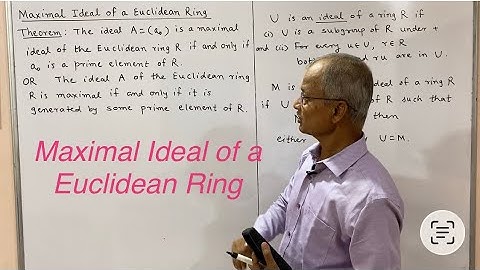 Maximal Ideal of a Euclidean Ring
Theorem: The ideal A = (a₀) is a maximal
ideal of the Euclidean ring R if and only if
a₀ is a prime element of R.
OR The ideal A of the Euclidean ring
R is maximal if and only if it is
generated by some prime element of R.
U is an ideal of a ring R if
(i) U is a subgroup of R under +
and (ii) For every u ∈ U, r ∈ R
both and ru are in U.
M is ideal of a ring R
if U of R such that
then
either U = M.
Maximal Ideal of a
Euclidean Ring